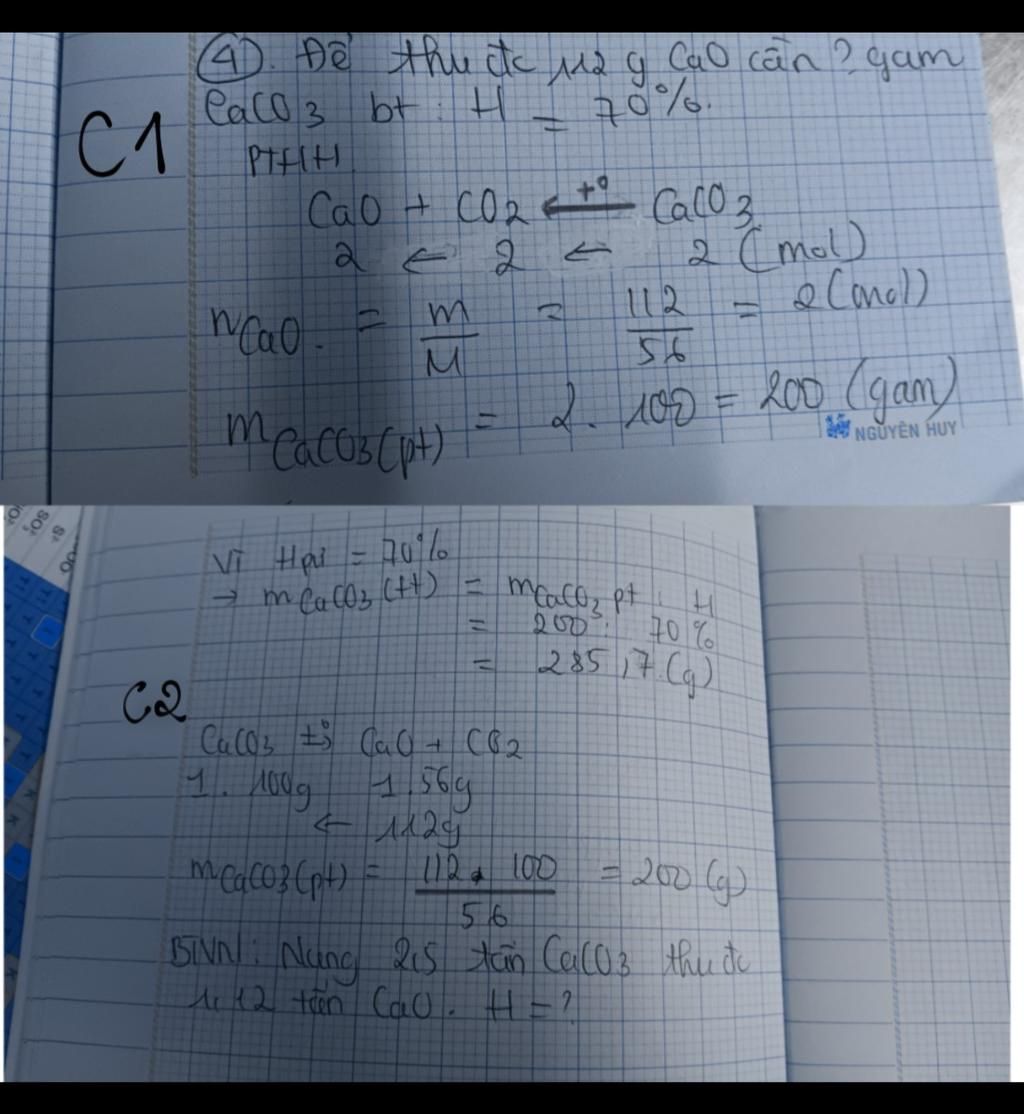 ④. Để thu đc 112 g CaO cần ? gam
CaCO3 bt : H = 70%.
C1
PTHH
CaO + CO2 ⟵ t° CaCO3
2 ← 2 ← 2 (mol)
nCaO. = m/M = 112/56 = 2 (mol)
mCaCO3(pt) = 2. 100 = 200 (gam)
NGUYÊN HUY
Vì Hpứ = 70%
→ mCaCO3 (tt) = mCaCO3 pt : H
= 200 : 70%
= 285,7.(g)
C2
CaCO3 t°→ CaO + CO2
1. 100g 1.56g
← 112g
mCaCO3(pt) = 112. 100/56 = 200 (g)
BTVN: Nung 2,5 tấn CaCO3 thu đc
1,12 tấn CaO. H = ?